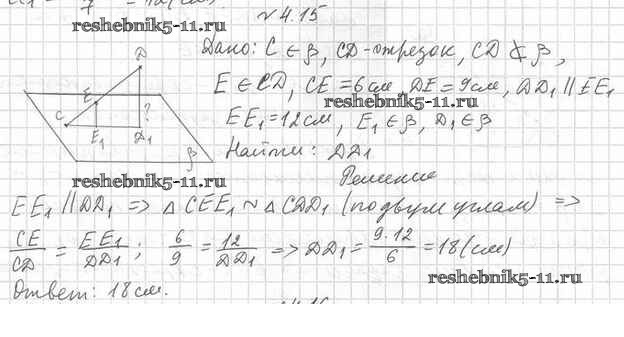 №4.15
reshebnik5-11.ru
Дано: C ∈ β, CD-отрезок, CD ⊄ β,
E ∈ CD, CE = 6 см, DE = 9 см, DD₁ ∥ EE₁
reshebnik5-11.ru
EE₁ = 12 см, E₁ ∈ β, D₁ ∈ β
Найти: DD₁
D
E
C
?
E₁
D₁
β
reshebnik5-11.ru
Решение
EE₁ ∥ DD₁ => △CEE₁ ~ △CDD₁ (по двум углам) =>
CE/CD = EE₁/DD₁; 6/9 = 12/DD₁ => DD₁ = 9·12/6 = 18 (см)
reshebnik5-11.ru
Ответ: 18 см.